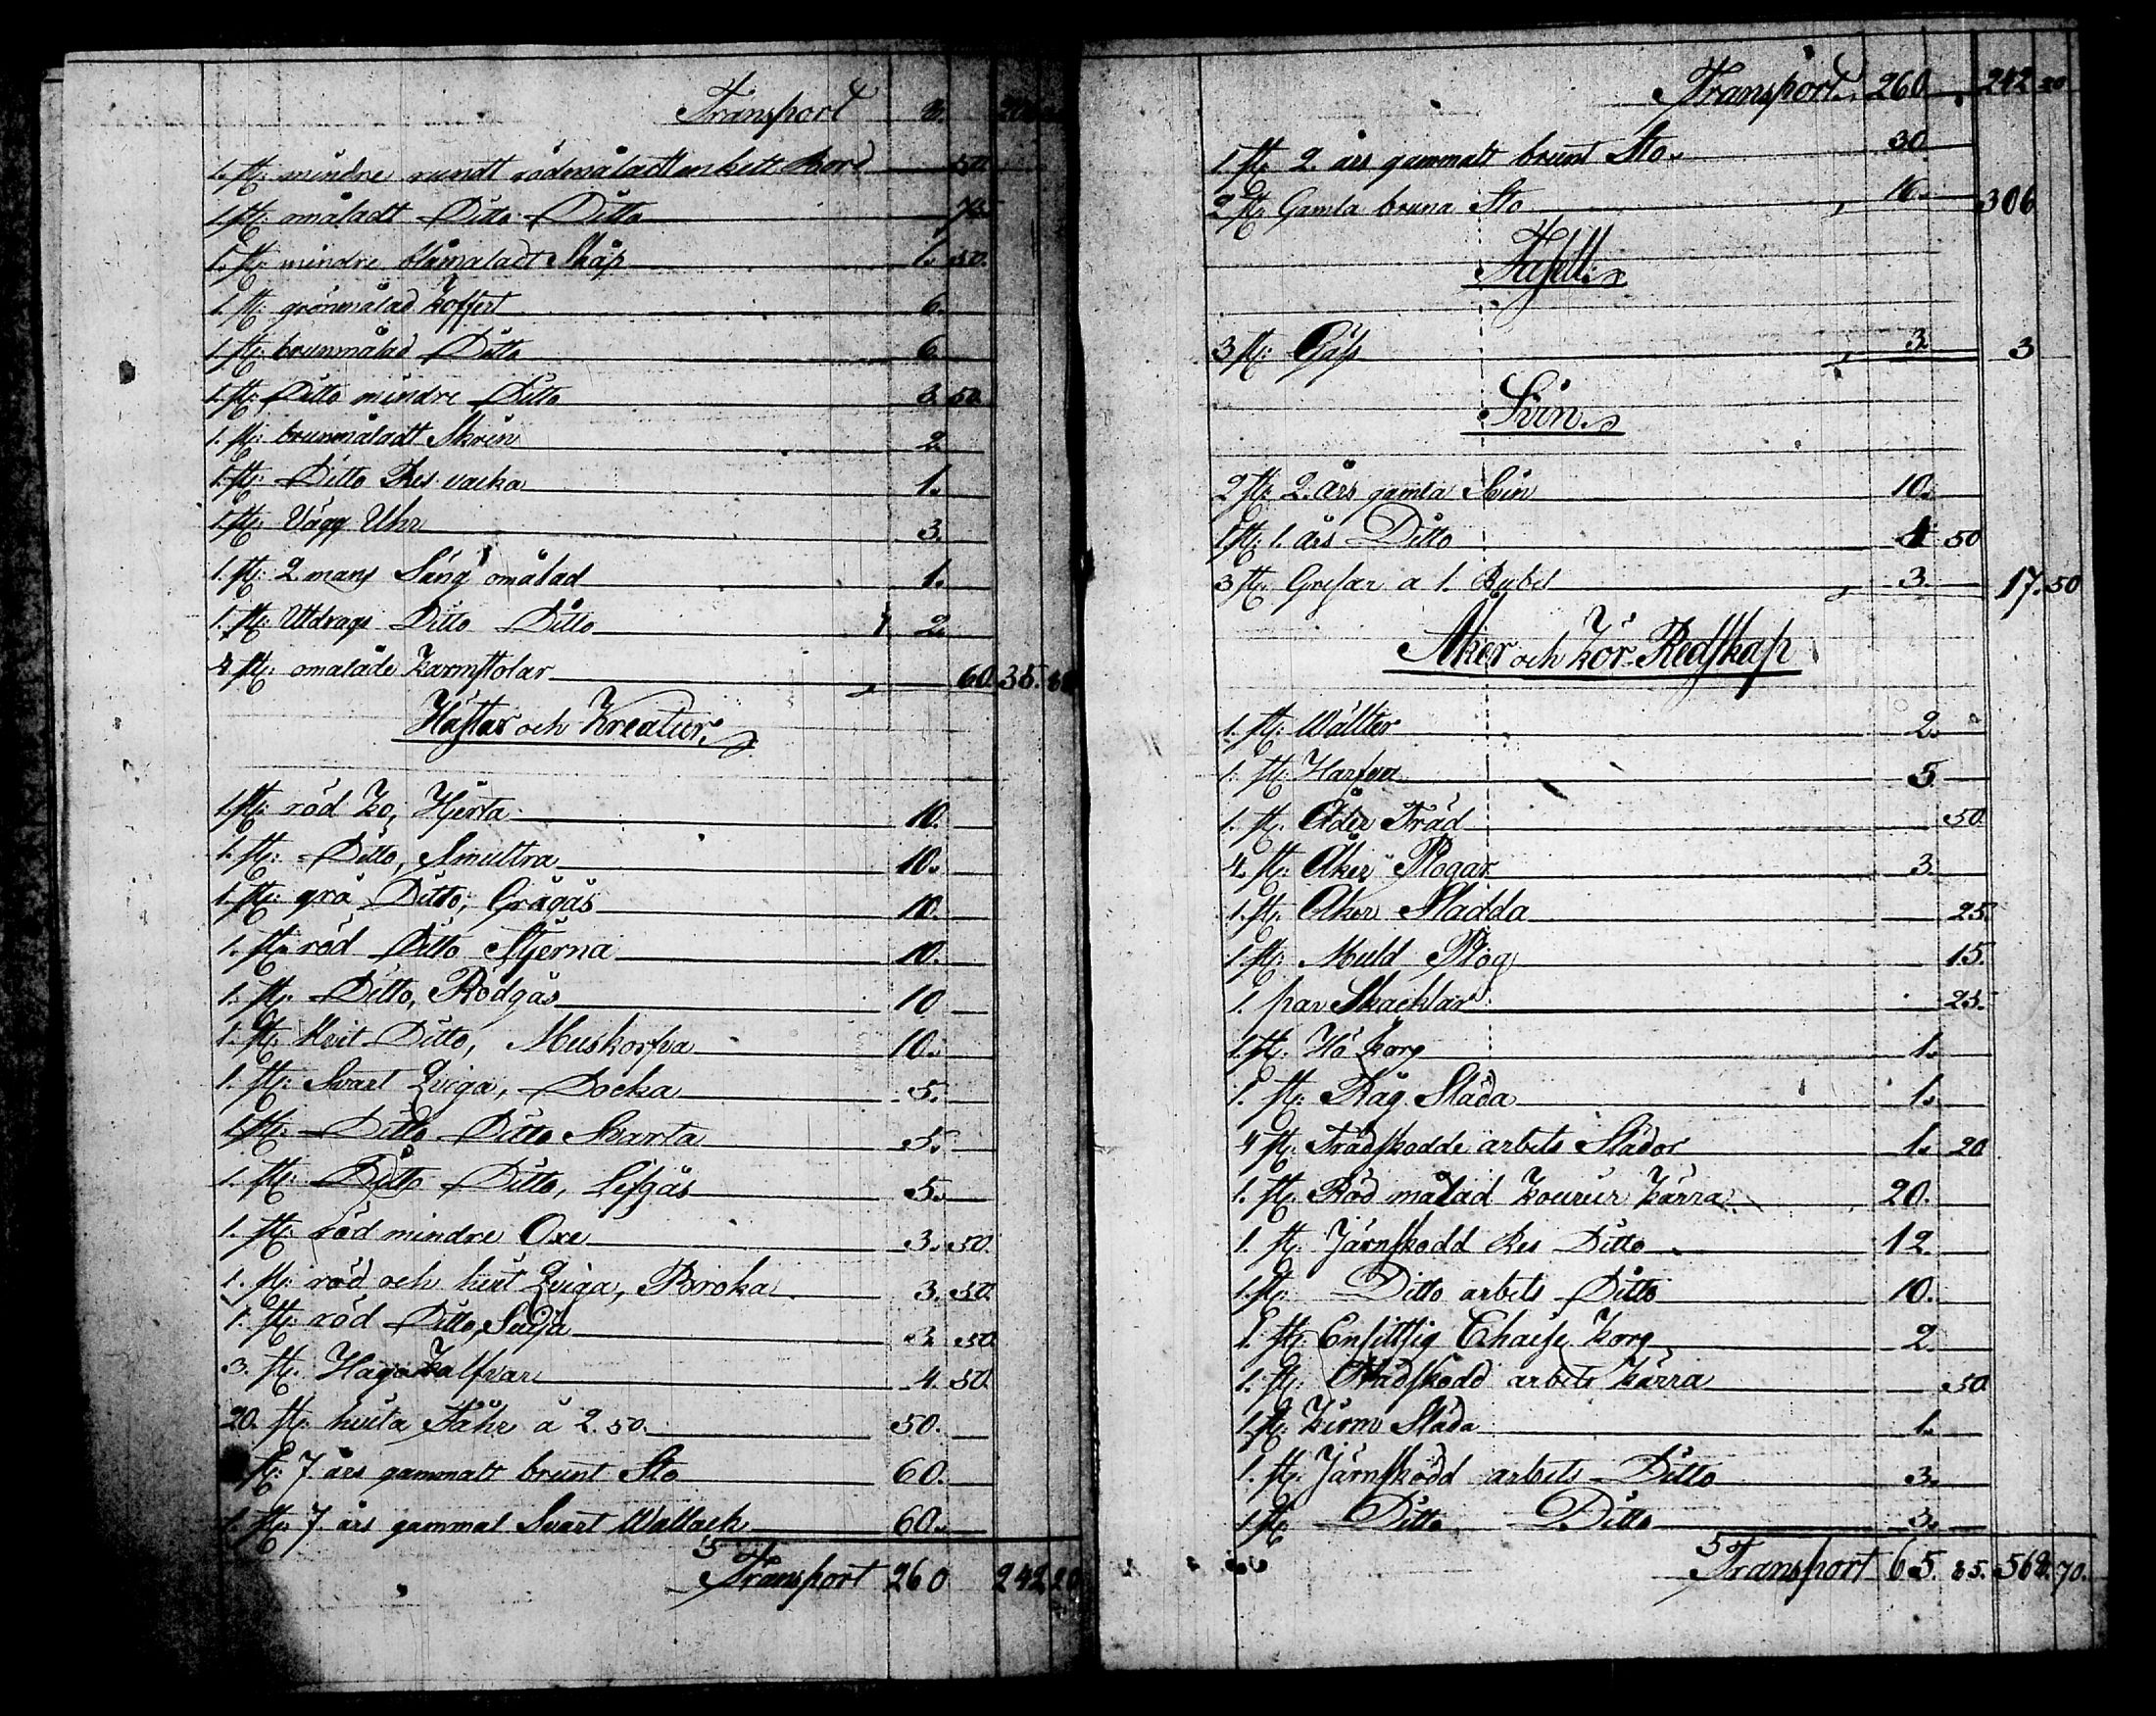 Transport 8.
1. st: mindre rundt rödmåladt enkelt Bord 50
1 st: omåladt Ditto Ditto 75
1. st: mindre blåmåladt Skåp 1. 50.
1. st: grönmålad Koffert 6.
1. st: brunmålad Ditto 6
1. st: Ditto mindre Ditto 3. 50
1. st: brunmåladt Skrin 2
1. st: Ditto Res vacka 1.
1. st: Vägg Uhr 3.
1. st: 2 mans Säng omålad 1.
1. st: Utdrags Ditto Ditto 2.
4 st: omålade Karmstolar 60. 35.
Hästar och Kreatur.
1. st: röd Ko, Hjerta 10.
1. st: Ditto, Smultra 10.
1. st: grå Ditto, Grågås 10.
1. st: röd Ditto Stjerna 10.
1. st: Ditto, Rödgås 10
1. st: Hvit Ditto, Muskorfva 10.
1. st: Svart Qviga, Docka 5.
1 st: Ditto Ditto Svarta 5.
1. st: Ditto Ditto, Lifgås 5.
1. st: röd mindre Oxe 3. 50.
1. st: röd och hvit Qviga, Broka 3. 50
1. st: röd Ditto, 3 50.
3. st: Haga Kalfvar 4. 50.
20. st: hvita Fåhr à 2. 50. 50.
st: 7 års gammalt brunt Sto 60.
1. st: 7 års gammal Svart Wallack 60.
Transport 260 242 20
Transport 260 242 20
1 st: 2 års gammalt brunt Sto. 30
2 st: Gamla bruna Sto 16. 306
3 st: Gäss 3. 3
Svin.
2 st: 2. års gamla Svin 10.
1 st: 1. års Ditto 4 50
3 st: Grisar a 1. Rubel 3. 17. 50
Åker och Kör-Redskap
1. st: Wälter 2.
1. st: Harfva 5
1. st: Åder Träd 50.
4. st: Åker Plogar 3.
1. st: Åker Sladda 25.
1. st: Muld Plog 15.
1. par Skacklar 25.
1 st: Hö Korg 1.
1. st: Råg Släda 1.
4 st: Trädskodde arbets Slädor 1. 20
1. st: Röd målad Kourir Kärra 20.
1. st: Järnskodd Res Ditto 12.
1. st: Ditto arbets Ditto 10.
1. st: Ensittsig Chaise Korg 2
1. st: Trädskodd arbets Kärra 50
1 st: Kirm Släda 1.
1. st: Järnskodd arbets Ditto 3.
1 st: Ditto Ditto 3.
Transport 65. 85. 568. 70.